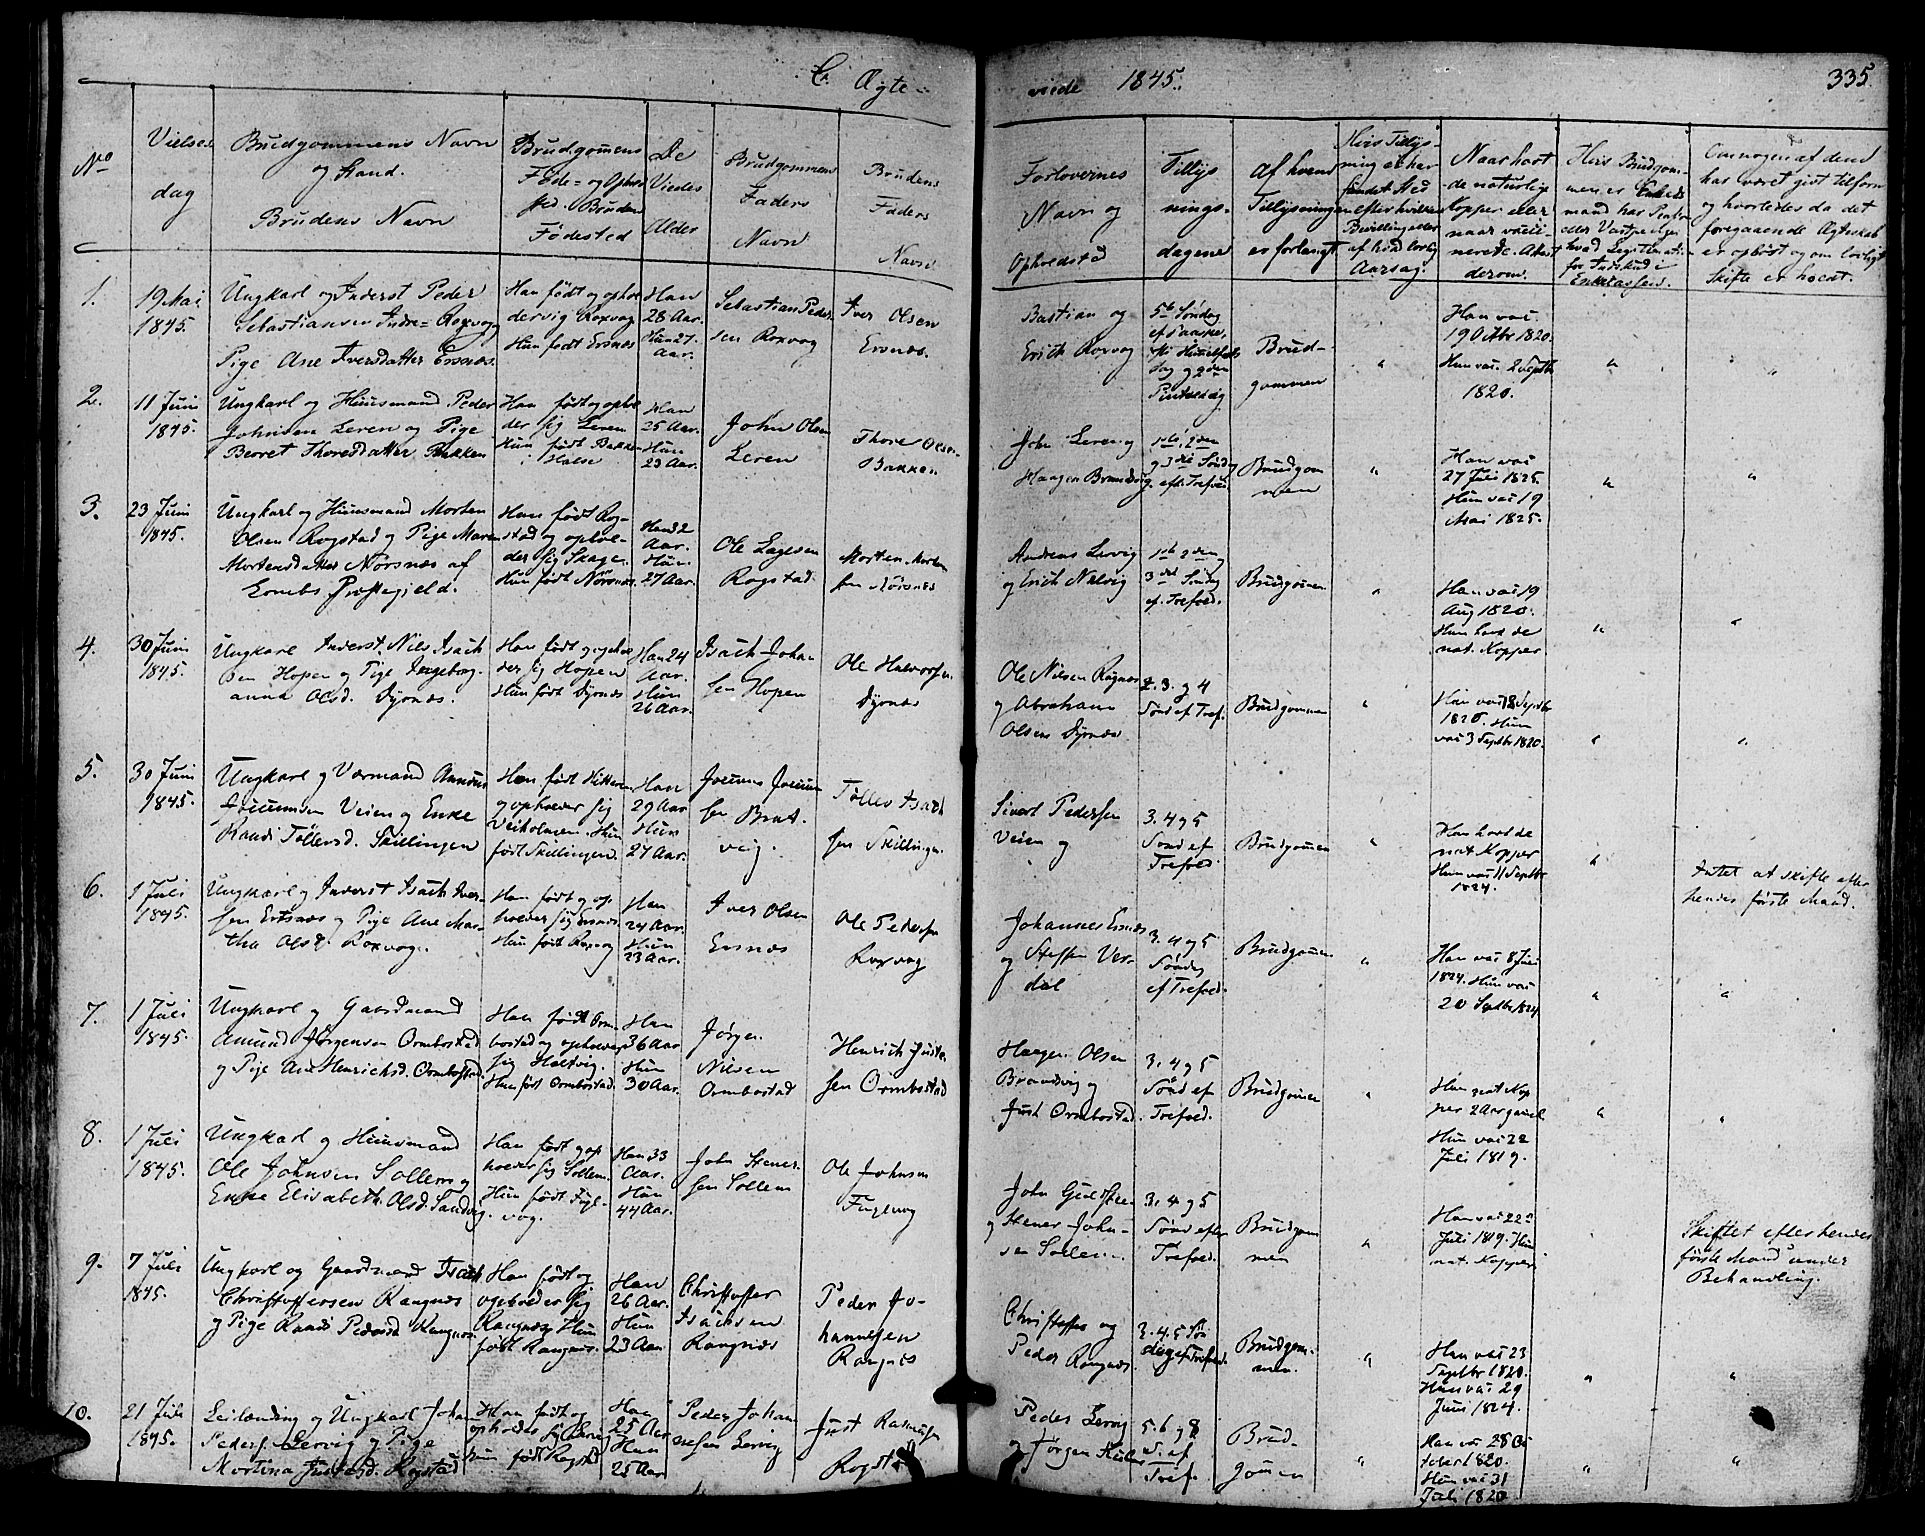 C. Ægte-
viede 1845.
335.
No
Vielses
dag
Brudgommens Navn
og Stand.
Brudens Navn
Brudgomens
Føde- og Ophol
sted. Brudens
Fødested
De
Viedes
Alder
Brudgommens
Faders
Navn
Brudens
Faders
Navn
Forlovernes
Navn og
Opholdsted
Tillys
nings-
dagene
Af hvem
Tillysningen
er forlangt
Hvis Tillys-
ning ei har
fundet Sted
efter hvilken
Bevilling eller
af hvad lovlig
Aarsag.
Naar havt
de naturlige
Kopper eller
naar vacci-
nerede. Attest
derom.
Hvis Brudgom-
men er Enkemand
har Pension
hvad Legitimation
for Indskud i
Enkekassen.
Om nogen af dem
har været givt tilforn
og hvorledes da det
foregaaende Ægteskab
er opløst og om lovligt
Skifte er holdt.
1.
19 Mai
1845.
Ungkarl og Inderst Peder
Sebastiansen Indre-Roxvog
Pige Ane Iversdatter Ersnæs.
Han født og ophol
der sig Roxvog
Hun født Ersnæs
Han
28 Aar.
Hun 27
Aar.
Sebastian Peder
sen Roxvog
Iver Olsen
Ersnæs.
Bastian og
Erich Roxvog
5te Søndag
ef. Paaske,
Himmelfarts
dag og 2den
Pintsedag
Brud-
gommen
"
Han vac.
19 Octbr 1820.
Hun vac. 2 Septbr
1820.
"
"
2.
11 Juni
1845.
Ungkarl og Huusmand Peder
Johnsen Leren og Pige
Berret Thoresdatter Bakken
Han født og ophol
der sig Leren
Hun født Bakken
i Halse
Han
25 Aar.
Hun
23 Aar.
John Olsen
Leren
Thore Olsen
Bakken
John Leren og
Haagen Brandvig
1ste, 2den
og 3die Sønd
eft. Trefol.
Brudgom
men
"
Han vac
27 Juli 1825.
Hun vac 19
Mai 1825.
"
"
3.
23 Juni
1845.
Ungkarl og Huusmand Morten
Olsen Rogstad og Pige Maren
Mortensdatter Nørsnæs af
Præstegjeld.
Han født Rog-
stad og ophol-
der sig Skage.
Hun født Nørsnæs
Han 32
Aar.
Hun
27 Aar.
Ole Eagesen
Rogstad.
Morten Morten
sen Nørsnæs
Anders Lervig
og Erich Nalvig
1ste 2den og
3die Sønd
ef. Trefold.
Brudgommen
"
Han vac 19
Aug 1820.
Hun havt de
nat. Kopper
"
"
4.
30 Juni
1845.
Ungkarl Inderst Nils Isach
sen Hopen og Pige Ingeborg-
anna Olsd. Dyrnæs.
Han født og ophol
der sig Hopen
Hun født Dyrnæs
Han 24
Aar.
Hun
26 Aar.
Isach Johan
sen Hopen
Ole Halvorsen
Dyrnæs
Ole Nilsen Ragnæs
og Abraham
Olsen Dyrnæs
2. 3. og 4
Sønd ef Tref.
Brudgommen
"
Han vac 18 Septbr
1820. Hun
vac 3 Septbr 1820.
"
"
5.
30 Juni
1845.
Ungkarl og Værmand Amund
Joenssen Veien og Enke
Randi Tøllersd. Skillingen
Han født Hitteren
og opholder sig
Veiholmen. Hun
født Skillingen.
Han
29 Aar
Hun
27 Aar.
Joen
sen Brat-
veig.
Tøller Isach
sen Skillingen
Sivert Pedersen
Veien og
3. 4 og 5
Sønd ef
Trefold.
Brudgommen
"
Han havt de
nat. Kopper
Hun vac 11 Septbr
1824.
"
Intet at skifte efter
hendes første Mand.
6.
1 Juli
1845.
Ungkarl og Inderst Isach Iver-
sen Ersnæs og Pige Ane Mar-
tha Olsd. Roxvog.
Han født og op
holder sig Ersnæs
Hun født Roxvog
Han
24 Aar.
Hun
23 Aar.
Iver Olsen
Ersnæs
Ole Pedersen
Roxvog
Johannes Ersnæs
og Steffen Ver-
dal
3. 4 og 5
Søndag
ef Trefold.
Brudgommen
"
Han vac 8 Juli
1824. Hun vac
20 Septbr 1824
"
"
7.
1 Juli
1845.
Ungkarl og Gaardmand
Amund Jørgensen Ormbostad
og Pige Ane Henrichsd. Ormbostad
Han født Orm
bostad og opholder
sig Holtvig.
Hun født Ormbostad.
Han
36 Aar
Hun
30 Aar.
Jørgen
Nilsen
Ormbostad
Henrich Juste
sen Ormbostad
Haagen Olsen
Brandvig og
Just Ormbostad.
3. 4 og 5
Sønd ef
Trefold.
Brudgommen
"
Han nat Kop
per 2 Aar gamel
Hun vac 22
Juli 1819.
"
"
8.
1 Juli
1845.
Ungkarl og Huusmand
Ole Johnsen Sollem og
Enke Elisabeth Olsd. Sandvig.
Han født og op
holder sig Sollem.
Hun født Fugl-
vog.
Han 33
Aar.
Hun
44 Aar.
John Stener-
sen Sollem
Ole Johnsen
Fuglevog
John
og Stener John-
sen Sollem.
3. 4 og 5
Sønd efter
Trefold.
Brudgom
men
"
Han vac 22
Juli 1819. Hun
nat. Kopper
Skiftet efter hendes
første Mand under
Behandling.
9.
7 Juli
1845.
Ungkarl og Gaardmand Isach
Christoffersen Rangnæs
og Pige Randi Pedersd. Rangnæs
Han født og
opholder sig
Rangnæs Hun
født Rangnæs.
Han
26 Aar.
Hun
23 Aar
Christoffer
Isachsen
Rangnæs
Peder Jo-
hannesen
Rangnæs
Christoffer og
Peder Rangnæs.
3. 4. 5 Søn
dag ef Trefold.
Brudgom-
men.
"
Han vac 23
Septbr 1820.
Hun vac 29
Juni 1824.
"
"
10.
21 Juli
1845.
Leilending og Ungkarl Johan
Peders. Lervig og Pige
Martina Justesd. Rogstad
Han født og
opholder sig Lervig
Hun født Rogstad
Han
25 Aar
Hun
25 Aar
Peder Johan
nesen Lervig
Just Rasmusen
Rogstad
Peder Lervig
og Jørgen
5. 6 og 8
S. ef
Tref.
Brud-
gommen
"
Han vac 28 Oc
tober 1820.
Hun vac 31
Juli 1820
"
"